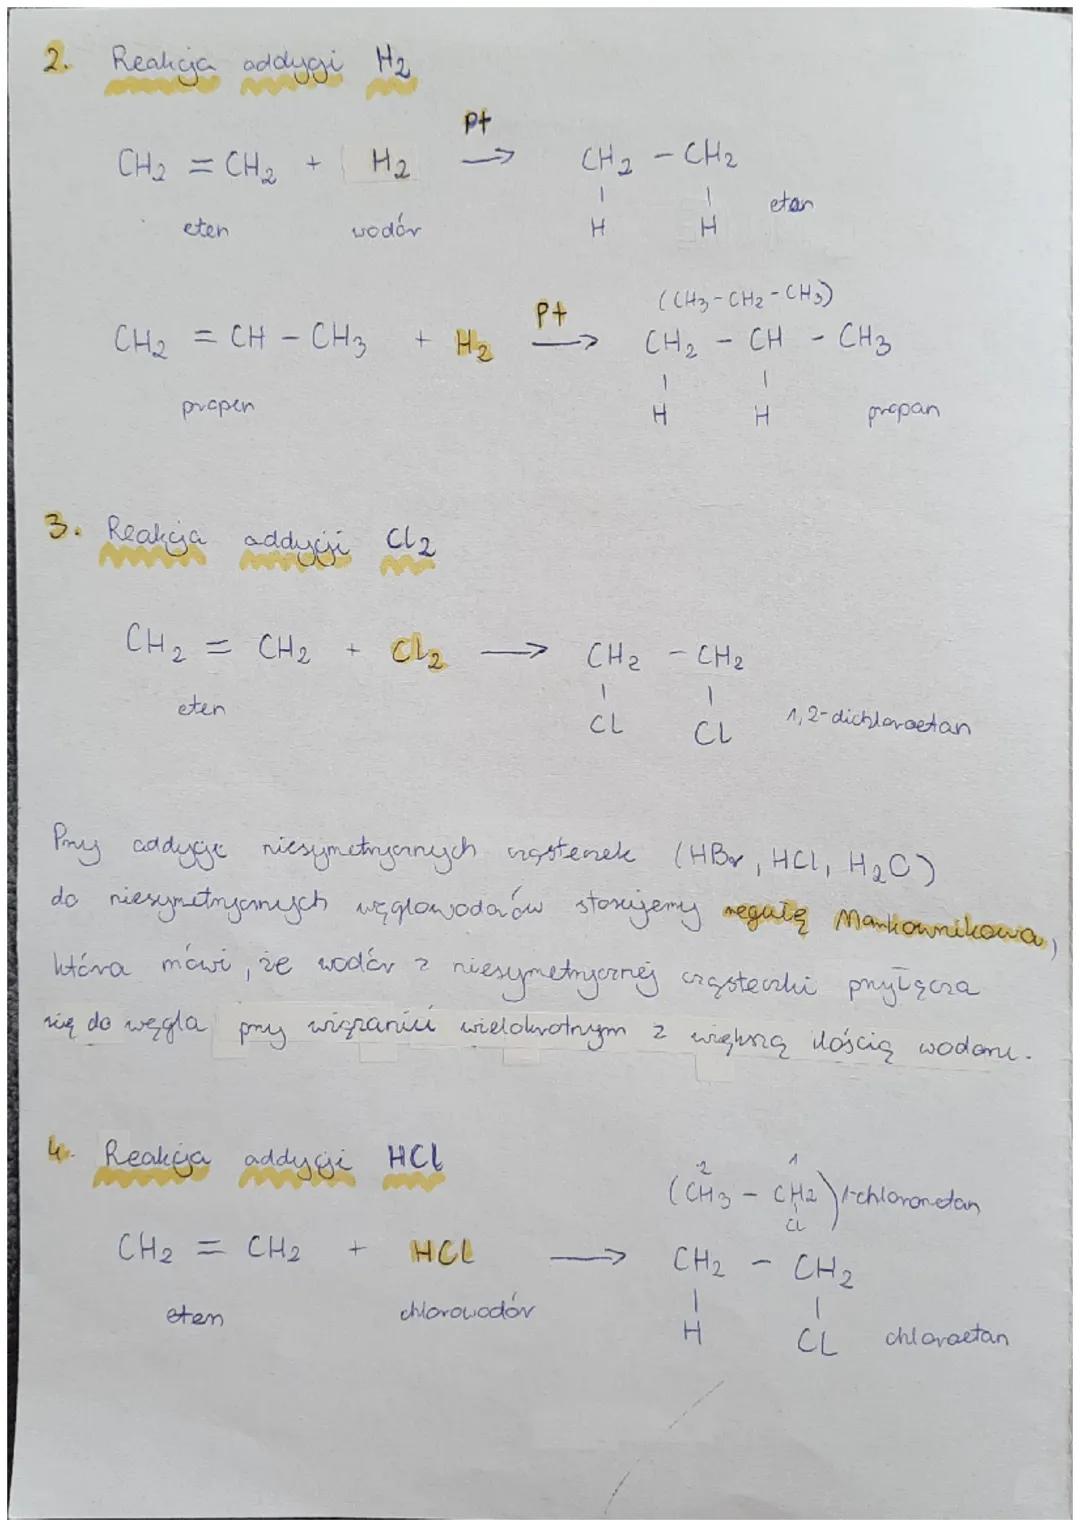 2. Reakcja addycji H₂
Pt
CH₂ = CH₂ + H₂ → CH₂ - CH₂
| |
H H
eten wodór etan
(CH₃-CH₂-CH₃)
Pt
CH₂ = CH - CH₃ + H₂ → CH₂ - CH - CH₃
| |
H H
propen propan
3. Reakcja addycji Cl₂
CH₂ = CH₂ + Cl₂ → CH₂ - CH₂
| |
Cl Cl
eten 1,2-dichloroetan
Przy addycji niesymetrycznych cząsteczek (HBr, HCl, H₂O)
do niesymetrycznych węglowodorów stosujemy regułę Markownikowa,
która mówi, że wodór z niesymetrycznej cząsteczki przyłącza
się do węgla przy wiązaniu wielokrotnym z większą ilością wodoru.
4. Reakcja addycji HCl
2 1
(CH₃ - CH₂) 1-chloroetan
Cl
CH₂ = CH₂ + HCl → CH₂ - CH₂
| |
H Cl
eten chlorowodór chloroetan